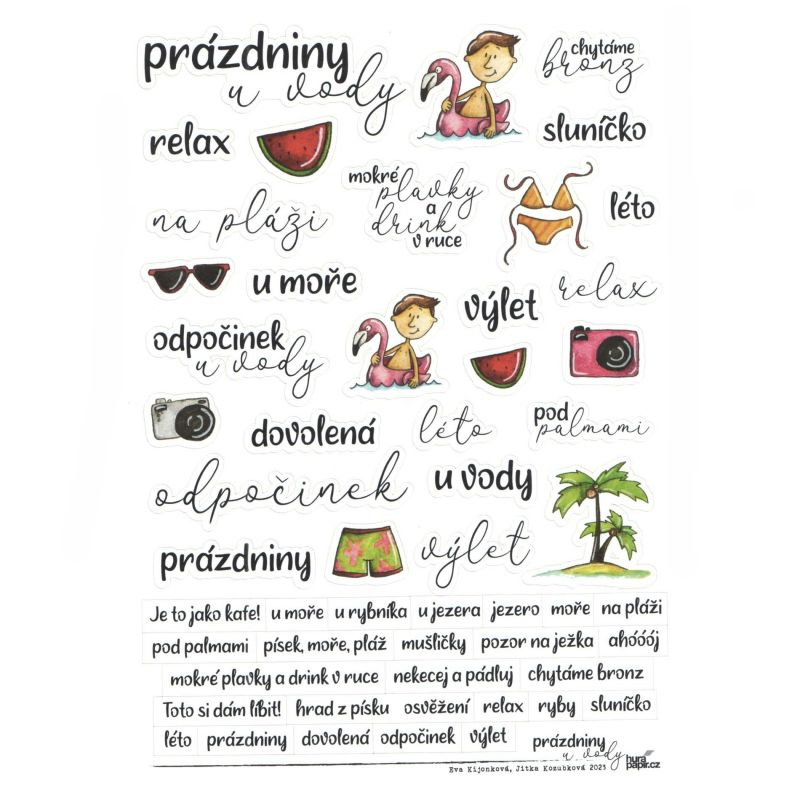 prázdniny
u vody
chytáme
bronz
relax
sluníčko
mokré
plavky
a
drink
v ruce
léto
na pláži
u moře
výlet
relax
odpočinek
u vody
dovolená
léto
pod
palmami
odpočinek
u vody
prázdniny
výlet
Je to jako kafe! u moře u rybníka u jezera jezero moře na pláži
pod palmami písek, moře, pláž mušličky pozor na ježka ahóóój
mokré plavky a drink v ruce nekecej a pádluj chytáme bronz
Toto si dám líbit! hrad z písku osvěžení relax ryby sluníčko
léto prázdniny dovolená odpočinek výlet
prázdniny
u vody
hurá
papír.cz
Eva Kijonková, Jitka Kozubková 2023